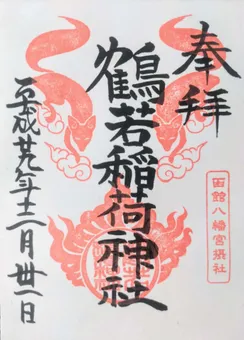 奉拝
函館八幡宮摂社
鶴若稲荷神社
平成廿九年十二月卅一日